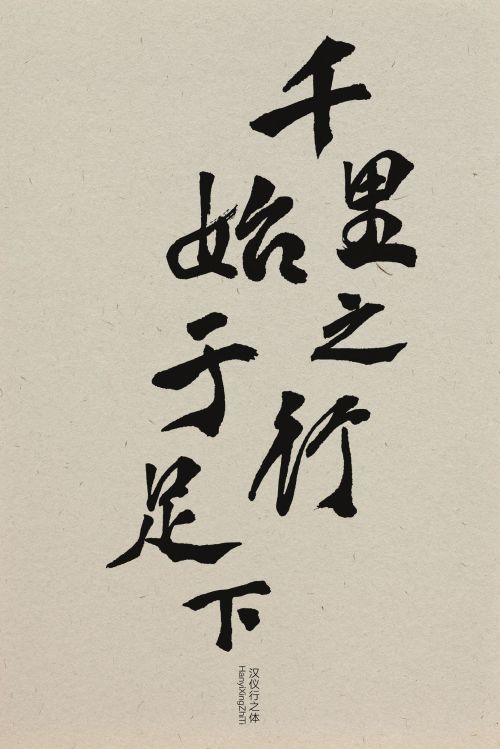 千里之行
始于足下
汉仪行之体
HanyiXingZhiTi